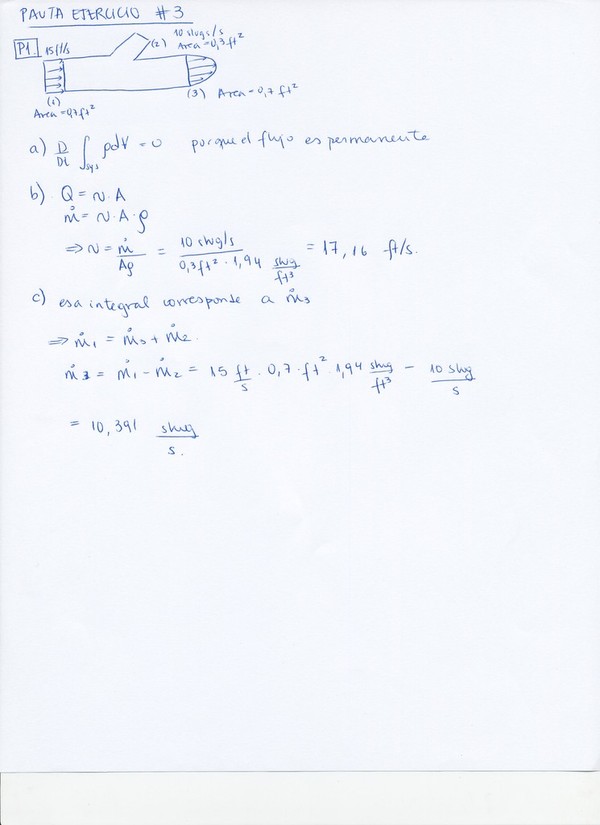 PAUTA EJERCICIO #3
P1. 15 ft/s (2) 10 slugs/s
Area = 0,3 ft²
(1) (3) Area = 0,7 ft²
Area = 0,7 ft²
a) D/Dt ∫sys ρdV = 0 porque el flujo es permanente
b) Q = v · A
ṁ = v · A · ρ
⇒ v = ṁ/Aρ = 10 slug/s / 0,3 ft² · 1,94 slug/ft³ = 17,16 ft/s.
c) esa integral corresponde a ṁ3
⇒ ṁ1 = ṁ3 + ṁ2.
ṁ3 = ṁ1 - ṁ2 = 15 ft/s · 0,7 · ft² · 1,94 slug/ft³ - 10 slug/s
= 10,391 slug/s.